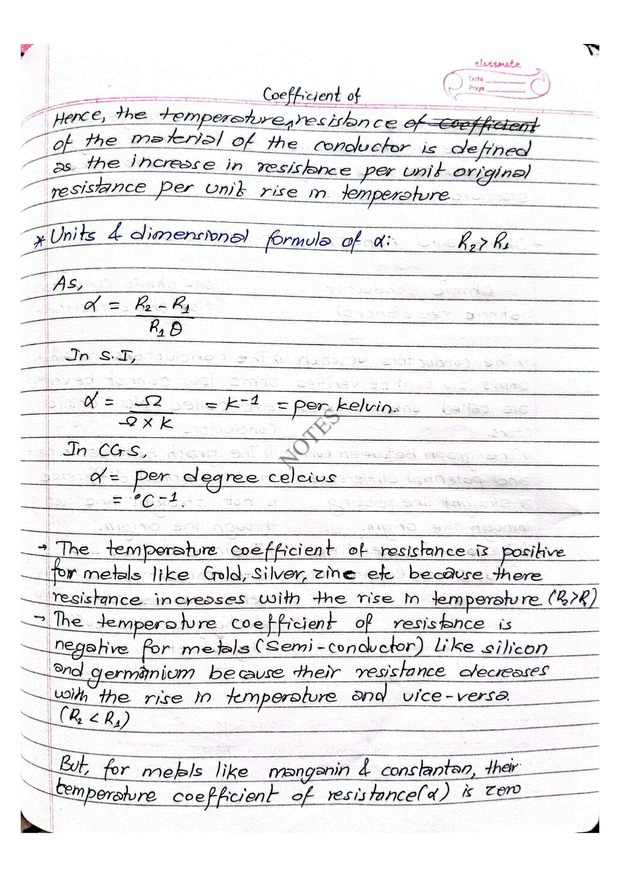 classmate
Date
Page
Coefficient of
Hence, the temperature resistance of coefficient
of the material of the conductor is defined
as the increase in resistance per unit original
resistance per unit rise in temperature
* Units & dimensional formula of α: R₂ > R₁
As,
α = R₂ - R₁
R₁ θ
In S.I,
α = Ω = K⁻¹ = per kelvin.
Ω × K
NOTES
In CGS,
α = per degree celcius
= °C⁻¹.
→ The temperature coefficient of resistance is positive
for metals like Gold, Silver, zinc etc because there
resistance increases with the rise in temperature (R₂>R₁)
→ The temperature coefficient of resistance is
negative for metals (Semi-conductor) Like silicon
and germanium because their resistance decreases
with the rise in temperature and vice-versa.
(R₂ < R₁)
But, for metals like manganin & constantan, their
temperature coefficient of resistance(α) is zero